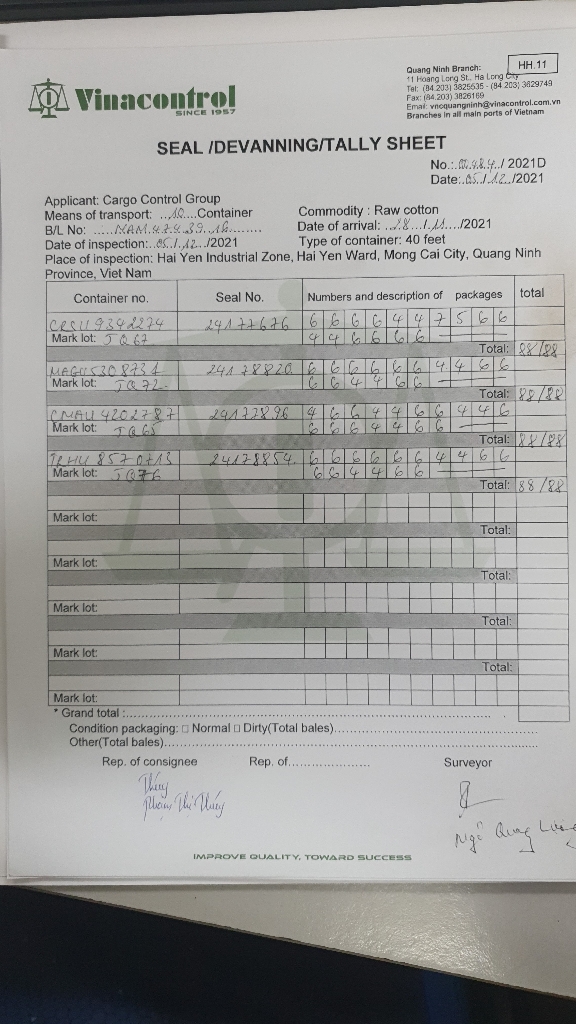 HH.11
Quang Ninh Branch:
11 Hoang Long St., Ha Long City
Tel: (84.203) 3825635 - (84.203) 3629749
Fax: (84.203) 3826169
Email: vncquangninh@vinacontrol.com.vn
Branches in all main ports of Vietnam
Vinacontrol
SINCE 1957
SEAL /DEVANNING/TALLY SHEET
No.: 00484 / 2021D
Date: 05 / 12 /2021
Applicant: Cargo Control Group
Means of transport: 10 Container
Commodity : Raw cotton
B/L No:
Date of arrival: 28 / 11 /2021
Date of inspection: 05 / 12 /2021
Type of container: 40 feet
Place of inspection: Hai Yen Industrial Zone, Hai Yen Ward, Mong Cai City, Quang Ninh
Province, Viet Nam
Container no. Seal No. Numbers and description of packages total
CRSU 9342274 24177676 6 6 6 6 4 4 7 5 6 6
Mark lot: JQ67 4 4 6 6 6 6
Total: 88/88
24178820 6 6 6 6 6 6 4 4 6 6
Mark lot: JQ72 6 6 4 4 6 6
Total: 88/88
CMAU 4202787 24177896 4 6 6 4 4 6 6 4 4 6
Mark lot: JQ65 6 6 6 4 4 6 6
Total: 88/88
TRHU 24178854 6 6 6 6 6 6 4 4 6 6
Mark lot: JQ76 6 6 4 4 6 6
Total: 88/88
Mark lot:
Total:
Mark lot:
Total:
Mark lot:
Total:
Mark lot:
Total:
Mark lot:
* Grand total :
Condition packaging: □ Normal □ Dirty(Total bales)
Other(Total bales)
Rep. of consignee Rep. of Surveyor
Thúy
Phạm Thị Thúy
Ngô Quang
IMPROVE QUALITY, TOWARD SUCCESS